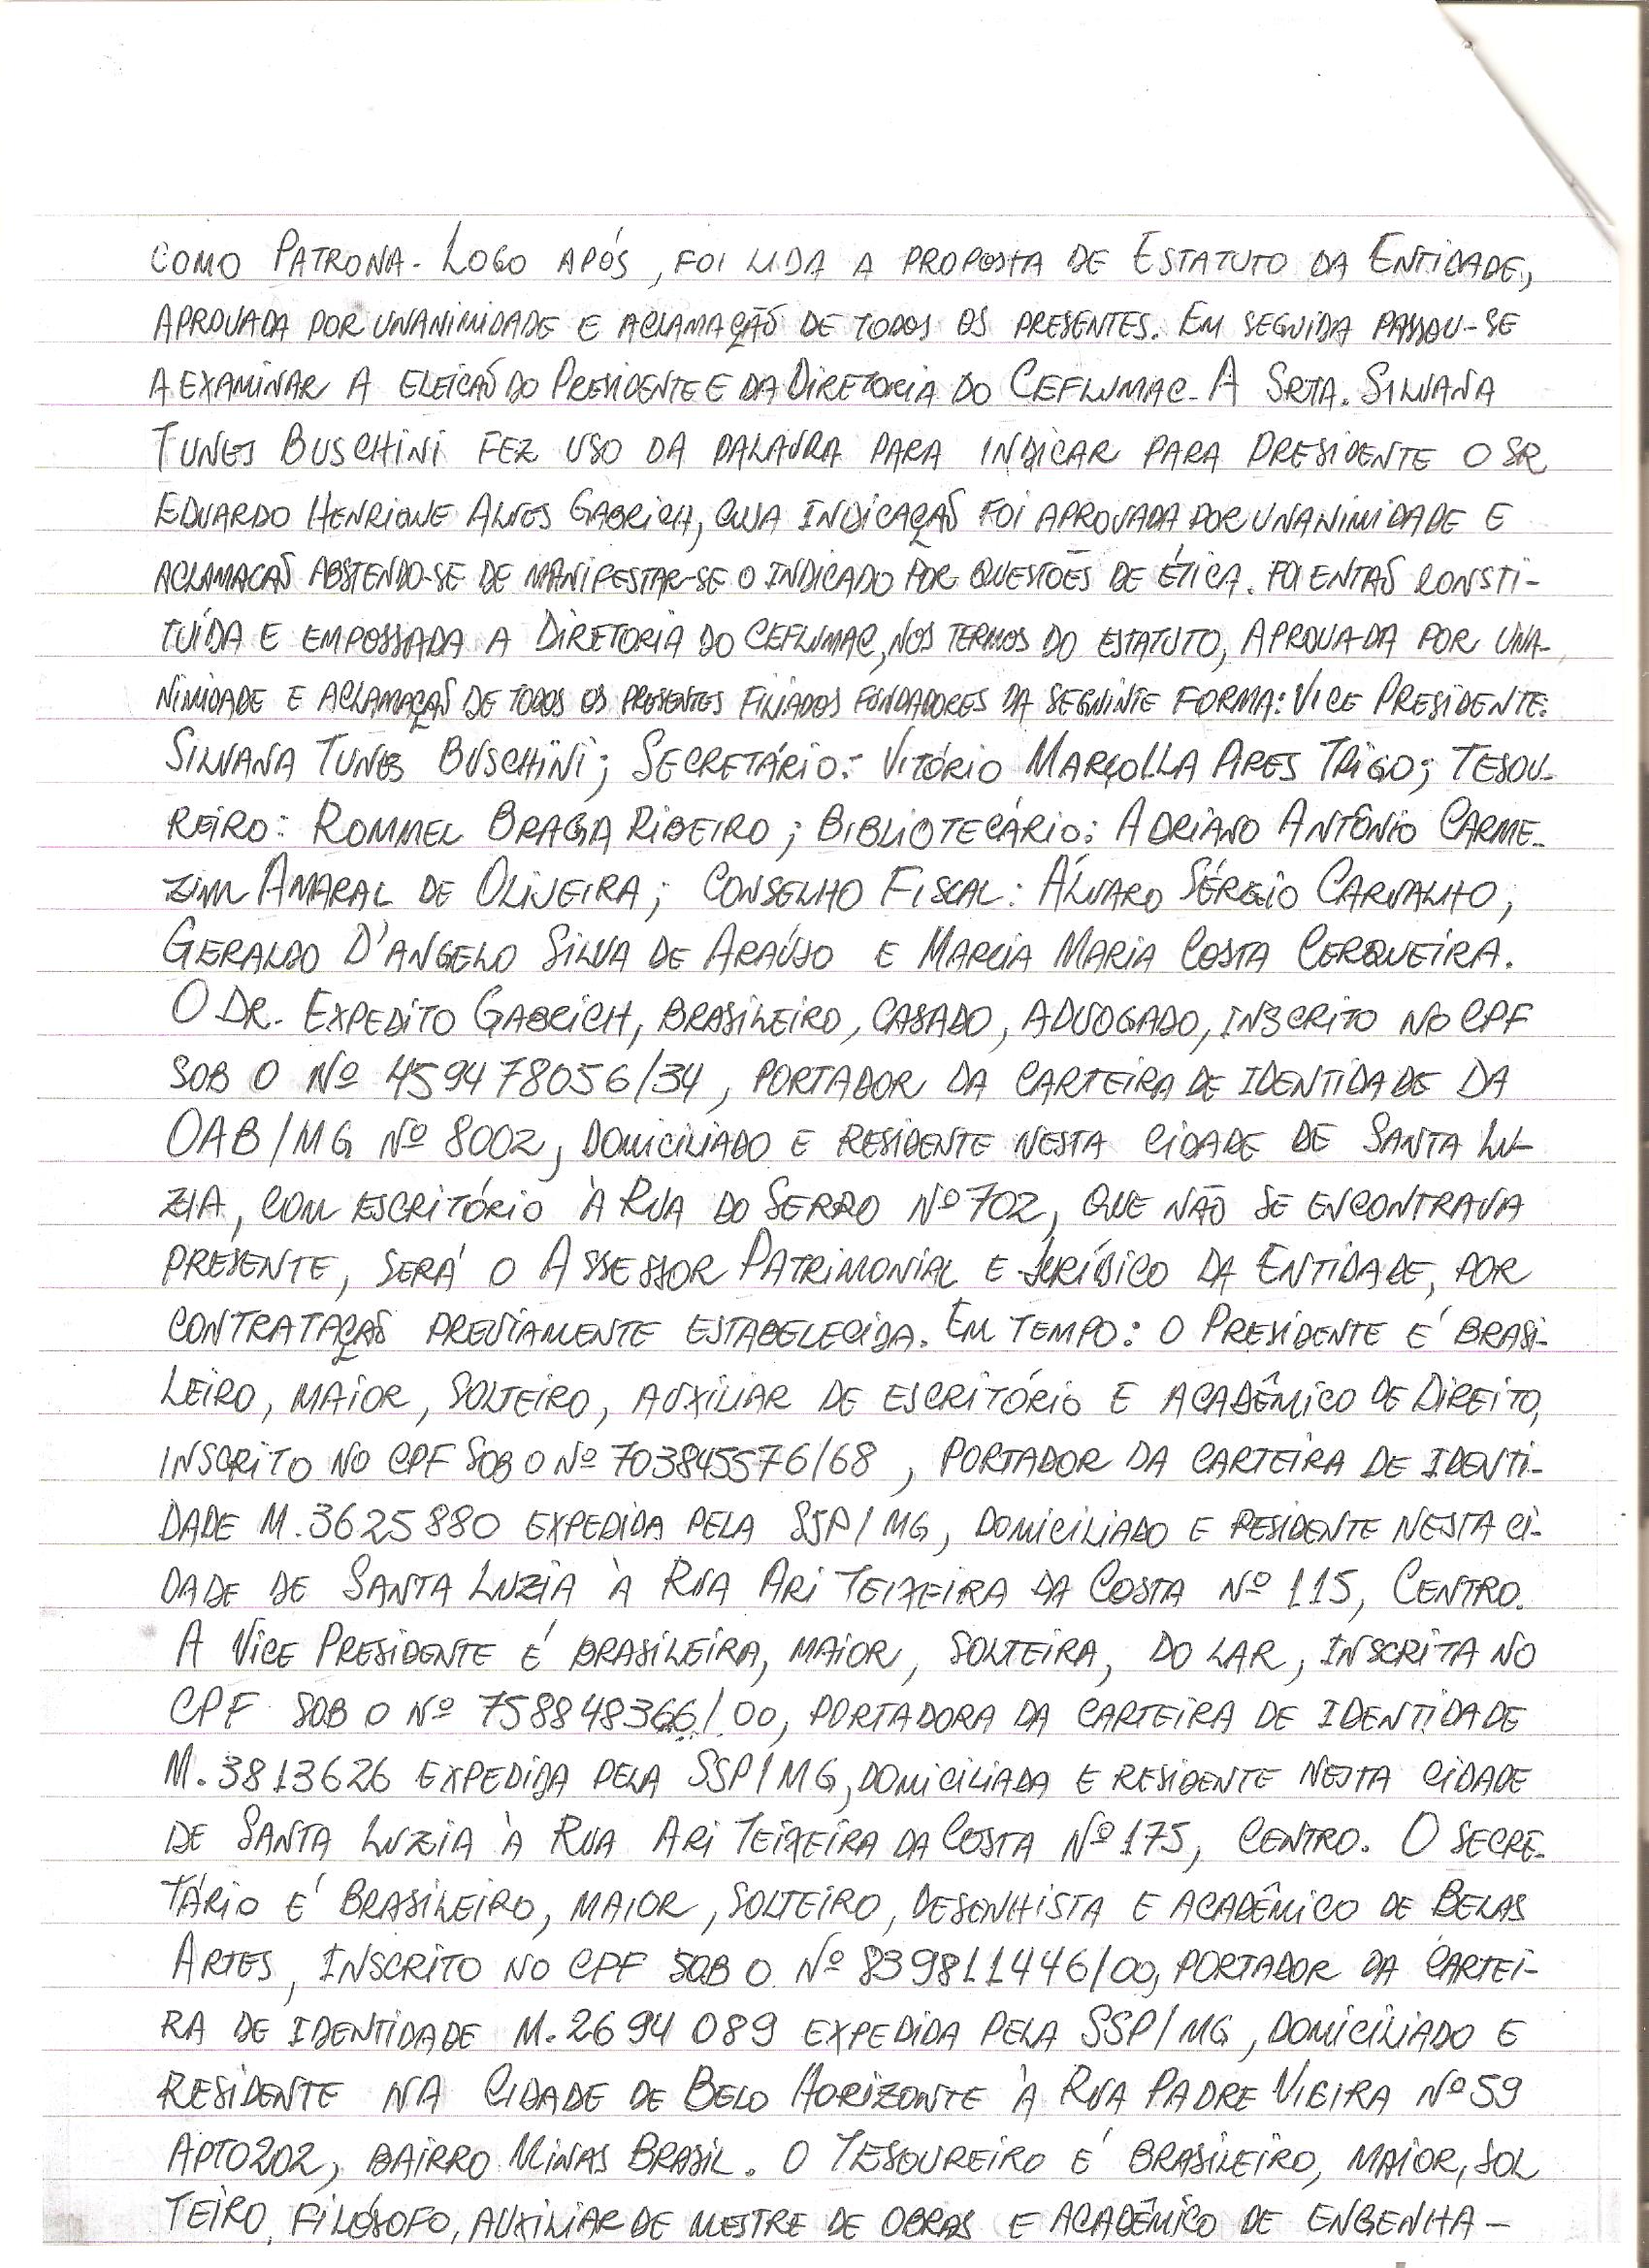 COMO PATRONA. LOGO APÓS, FOI LIDA A PROPOSTA DE ESTATUTO DA ENTIDADE,
APROVADA POR UNANIMIDADE E ACLAMAÇÃO DE TODOS OS PRESENTES. EM SEGUIDA PASSOU-SE
A EXAMINAR A ELEIÇÃO DO PRESIDENTE E DA DIRETORIA DO CEFLUMAC. A SRTA. SILVANA
TUNES BUSCHINI FEZ USO DA PALAVRA PARA INDICAR PARA PRESIDENTE O SR
EDUARDO HENRIQUE ALVES GABRICH, CUJA INDICAÇÃO FOI APROVADA POR UNANIMIDADE E
ACLAMACÃO ABSTENDO-SE DE MANIFESTAR-SE O INDICADO POR QUESTÕES DE ÉTICA. FOI ENTÃO CONSTI-
TUÍDA E EMPOSSADA A DIRETORIA DO CEFLUMAC, NOS TERMOS DO ESTATUTO, APROVADA POR UNA-
NIMIDADE E ACLAMAÇÃO DE TODOS OS PRESENTES FILIADOS FUNDADORES DA SEGUINTE FORMA: VICE PRESIDENTE:
SILVANA TUNES BUSCHINI; SECRETÁRIO: VITÓRIO MARÇOLLA PIRES TRIGO; TESOU-
REIRO: ROMMEL BRAGA RIBEIRO; BIBLIOTECÁRIO: ADRIANO ANTÔNIO CARME-
ZIM AMARAL DE OLIVEIRA; CONSELHO FISCAL: ÁLVARO SÉRGIO CARVALHO,
GERALDO D'ANGELO SILVA DE ARAÚJO E MARCIA MARIA COSTA CERQUEIRA.
O DR. EXPEDITO GABRICH, BRASILEIRO, CASADO, ADVOGADO, INSCRITO NO CPF
SOB O Nº 459478056/34, PORTADOR DA CARTEIRA DE IDENTIDADE DA
OAB/MG Nº 8002, DOMICILIADO E RESIDENTE NESTA CIDADE DE SANTA LU-
ZIA, COM ESCRITÓRIO À RUA DO SERRO Nº 702, QUE NÃO SE ENCONTRAVA
PRESENTE, SERÁ O ASSESSOR PATRIMONIAL E JURÍDICO DA ENTIDADE, POR
CONTRATAÇÃO PREVIAMENTE ESTABELECIDA. EM TEMPO: O PRESIDENTE É BRASI-
LEIRO, MAIOR, SOLTEIRO, AUXILIAR DE ESCRITÓRIO E ACADÊMICO DE DIREITO,
INSCRITO NO CPF SOB O Nº 703845576/68, PORTADOR DA CARTEIRA DE IDENTI-
DADE M.3625880 EXPEDIDA PELA SSP/MG, DOMICILIADO E RESIDENTE NESTA CI-
DADE DE SANTA LUZIA À RUA ARI TEIXEIRA DA COSTA Nº 115, CENTRO.
A VICE PRESIDENTE É BRASILEIRA, MAIOR, SOLTEIRA, DO LAR, INSCRITA NO
CPF SOB O Nº 758848366/00, PORTADORA DA CARTEIRA DE IDENTIDADE
M.3813626 EXPEDIDA PELA SSP/MG, DOMICILIADA E RESIDENTE NESTA CIDADE
DE SANTA LUZIA À RUA ARI TEIXEIRA DA COSTA Nº 175, CENTRO. O SECRE-
TÁRIO É BRASILEIRO, MAIOR, SOLTEIRO, DESENHISTA E ACADÊMICO DE BELAS
ARTES, INSCRITO NO CPF SOB O Nº 839811446/00, PORTADOR DA CARTEI-
RA DE IDENTIDADE M.2694089 EXPEDIDA PELA SSP/MG, DOMICILIADO E
RESIDENTE NA CIDADE DE BELO HORIZONTE À RUA PADRE VIEIRA Nº 59
APTO 202, BAIRRO MINAS BRASIL. O TESOUREIRO É BRASILEIRO, MAIOR, SOL
TEIRO, FILÓSOFO, AUXILIAR DE MESTRE DE OBRAS E ACADÊMICO DE ENGENHA-